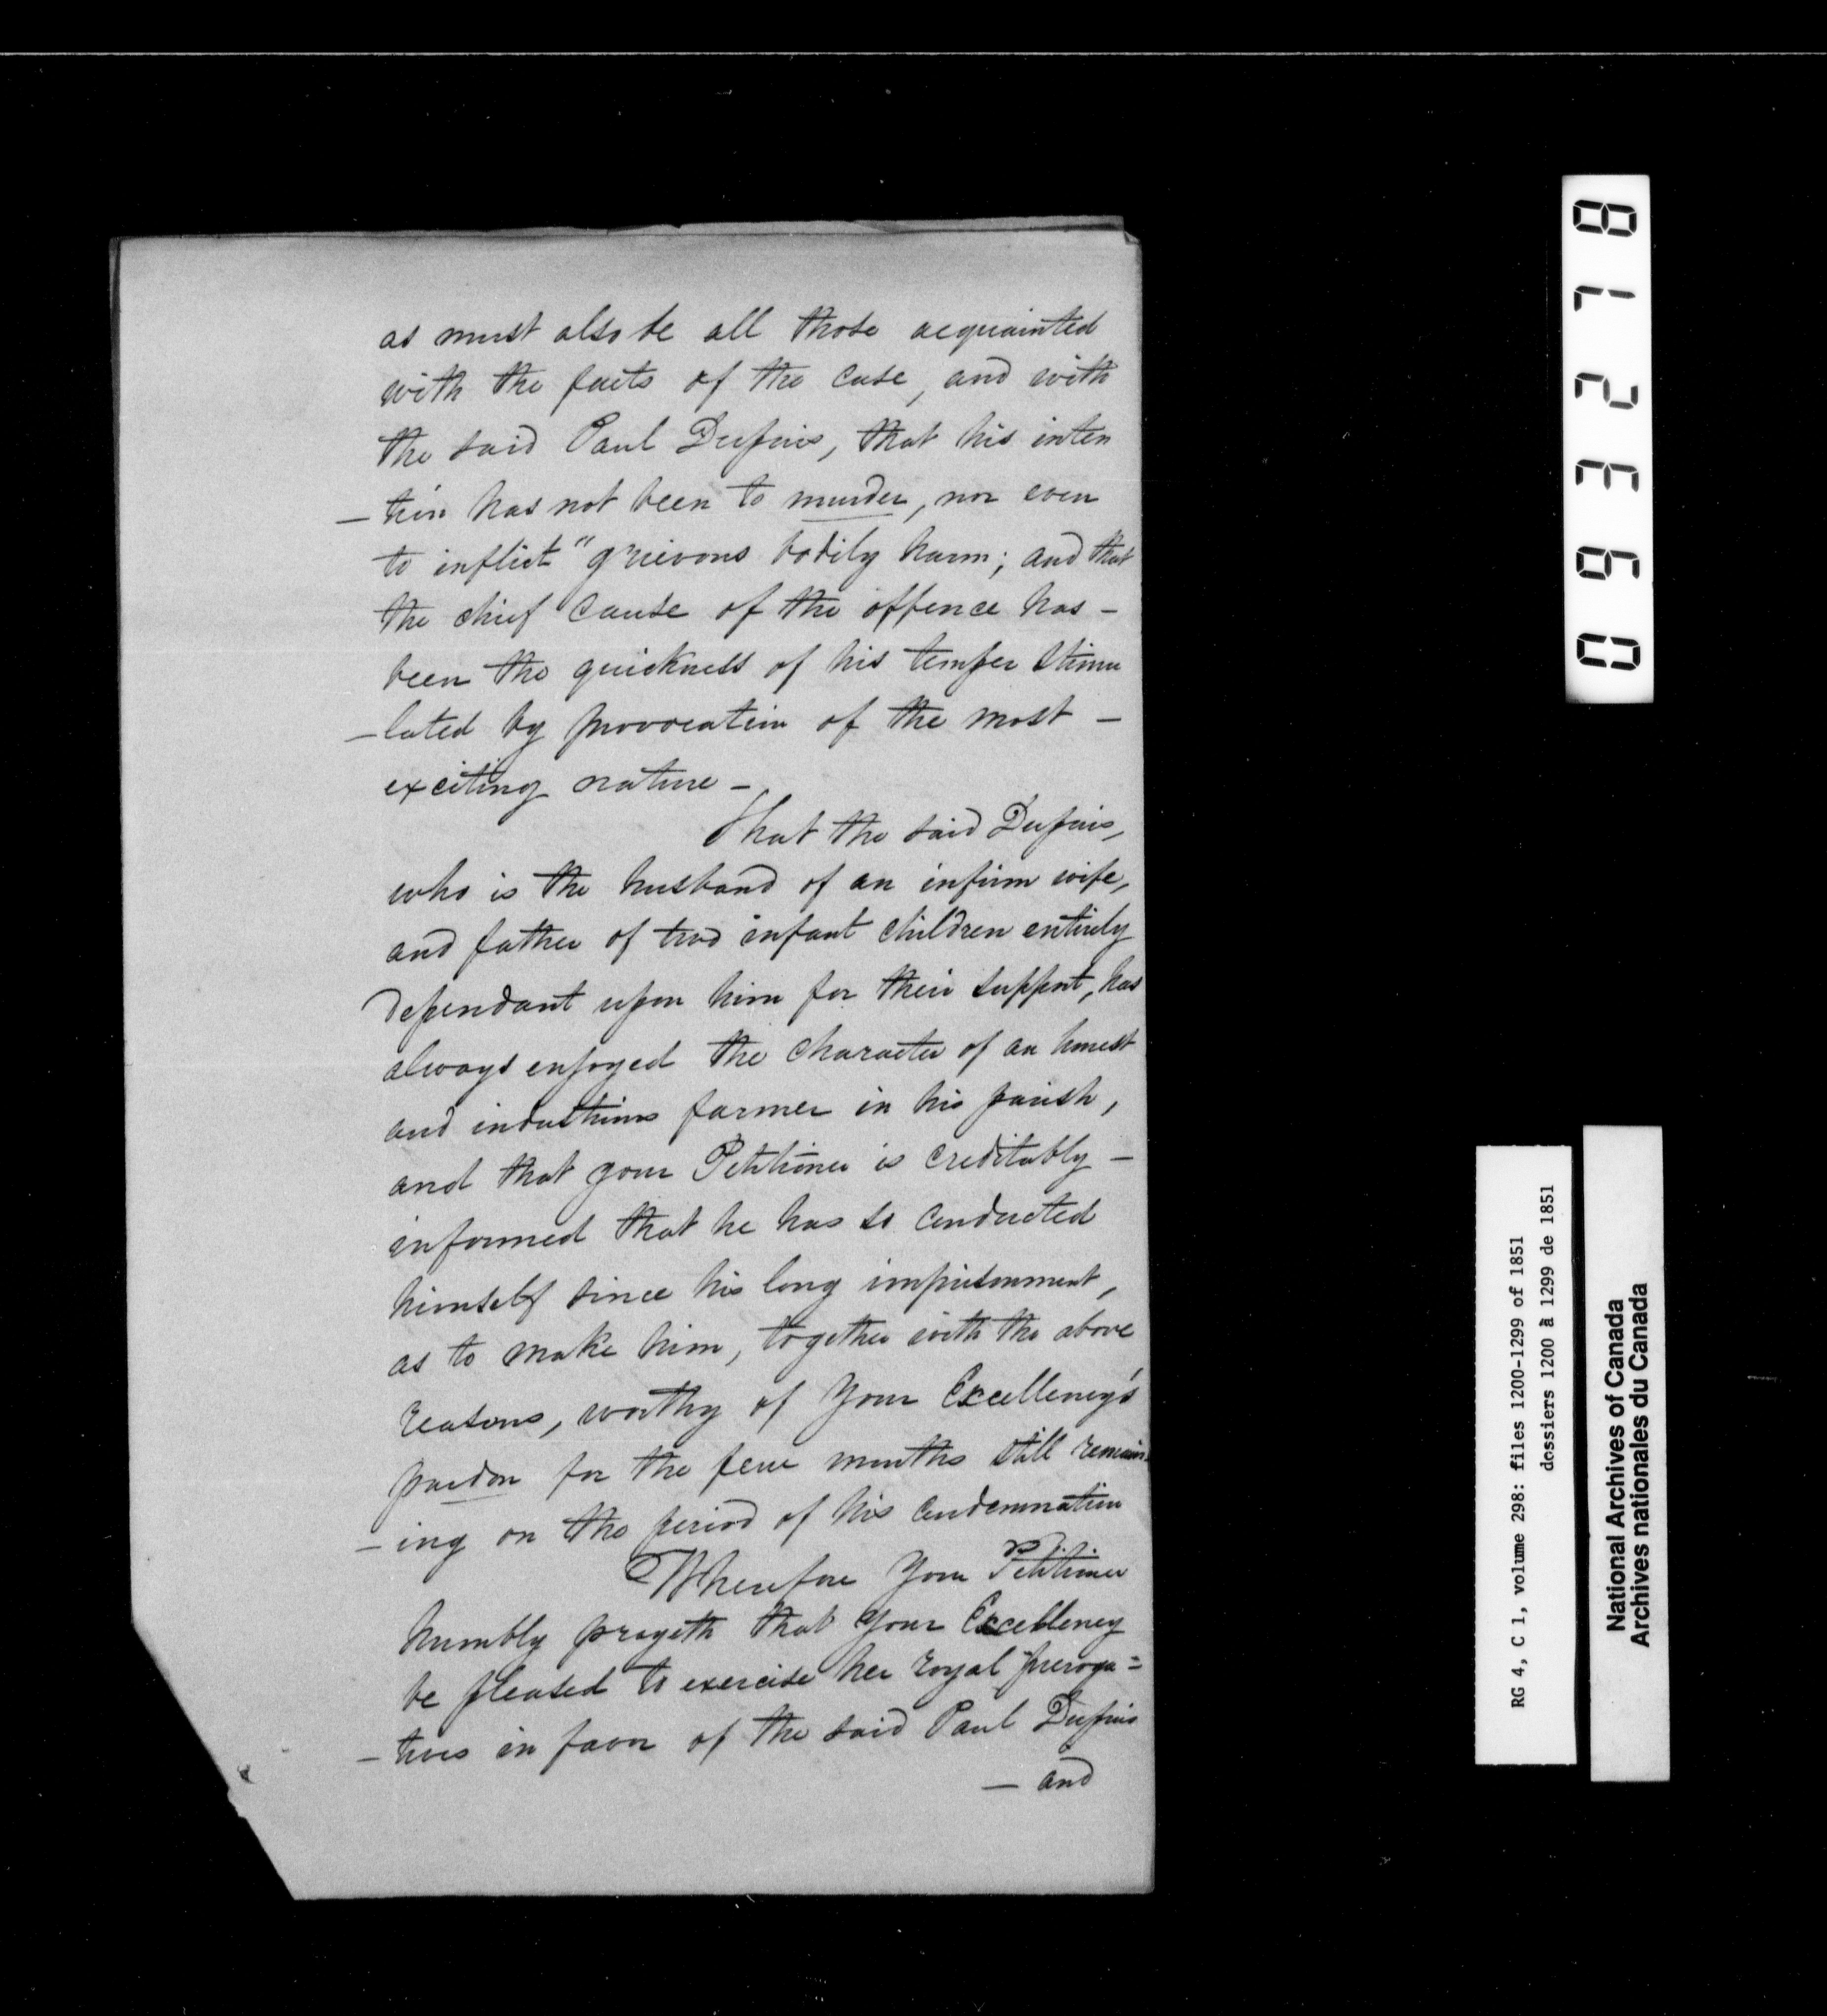 as must also be all those acquainted
with the facts of the case, and with
the said Paul Dupuis, that his inten
– tion has not been to murder, nor even
to inflict "grievous bodily harm; and that
the chief cause of the offence has –
been the quickness of his temper stimu
– lated by provocation of the most –
exciting nature –
That the said Dupuis,
who is the husband of an infirm wife,
and father of two infant children entirely
dependant upon him for their support, has
always enjoyed the character of an honest
and industrious farmer in his parish,
and that your Petitioner is creditably –
informed that he has so conducted
himself since his long imprisonment,
as to make him, together with the above
reasons, worthy of Your Excellency's
pardon for the few months still remain
– ing on the period of his condemnation
Wherefore Your Petitioner
humbly prayeth that Your Excellency
be pleased to exercise her royal preroga =
– tives in favor of the said Paul Dupuis
– and
093278
RG 4, C 1, volume 298: files 1200-1299 of 1851
dossiers 1200 à 1299 de 1851
National Archives of Canada
Archives nationales du Canada